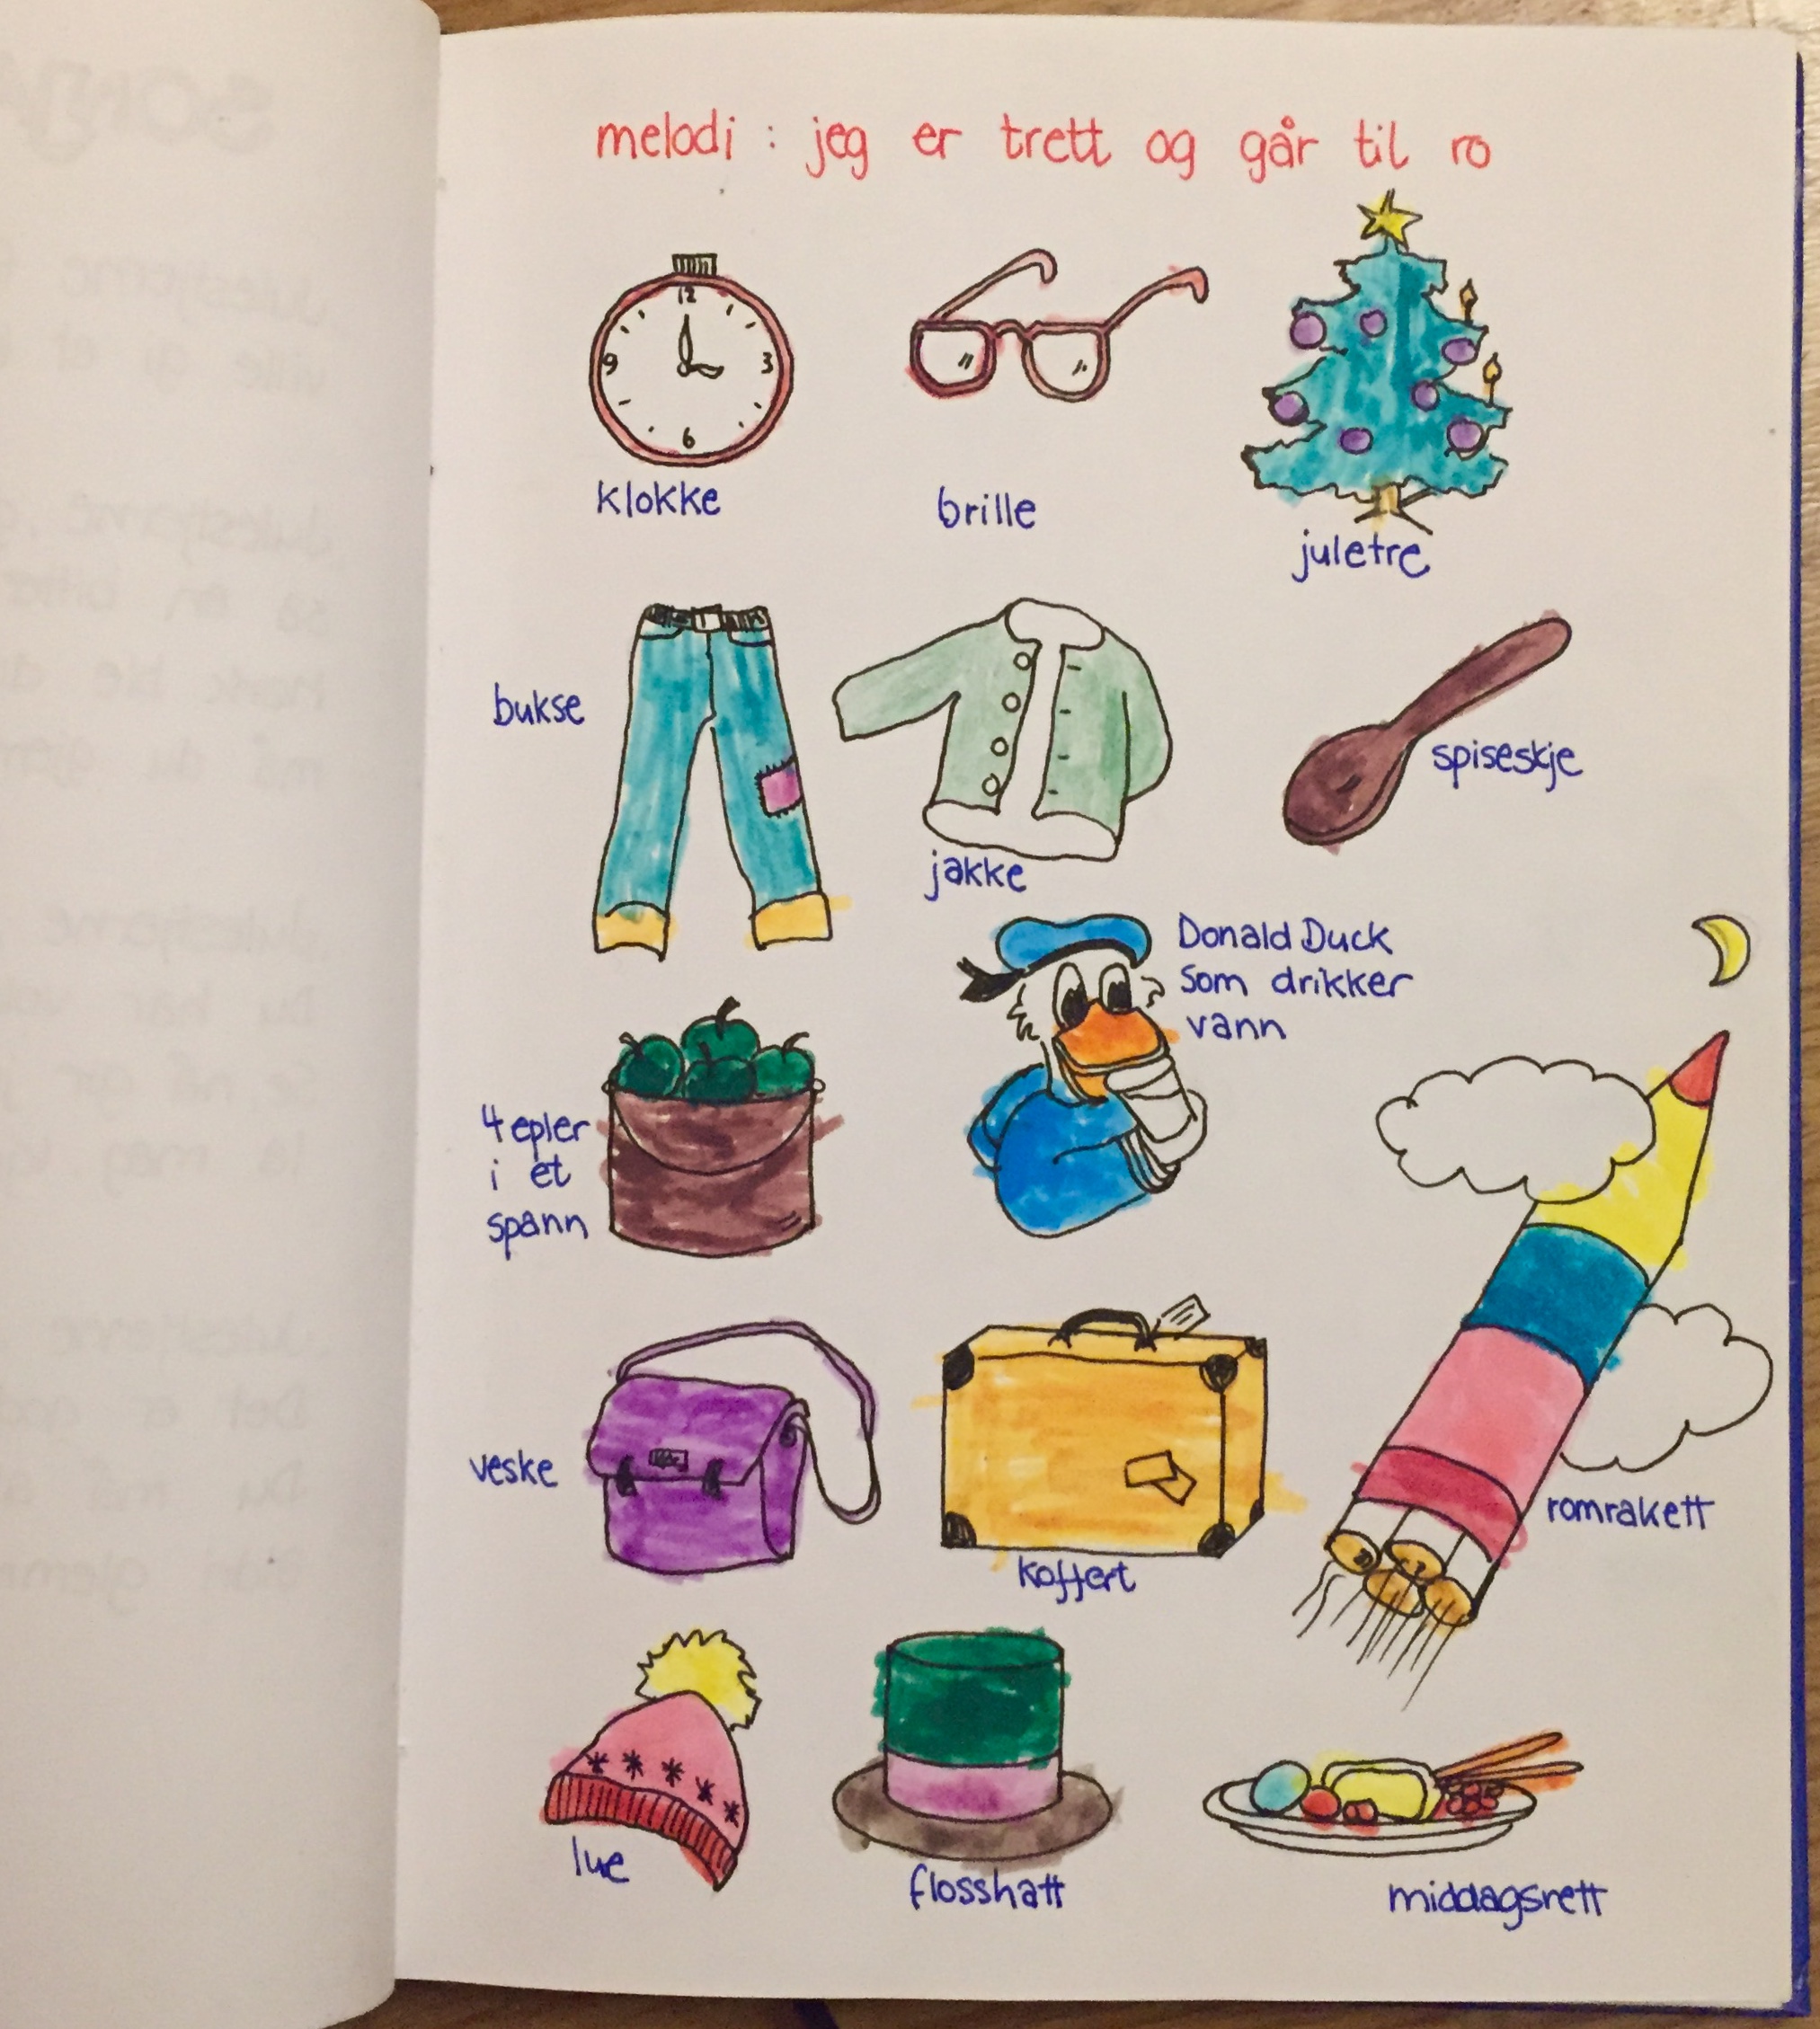 melodi : jeg er trett og går til ro
12
9 3
6
klokke
brille
juletre
bukse
jakke
spiseskje
Donald Duck
som drikker
vann
4 epler
i et
spann
veske
koffert
romrakett
lue
flosshatt
middagsrett